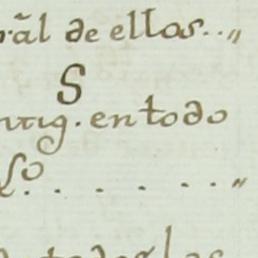 r͞al de ellos..„
S
ntig. en todo
so . . . . . . „